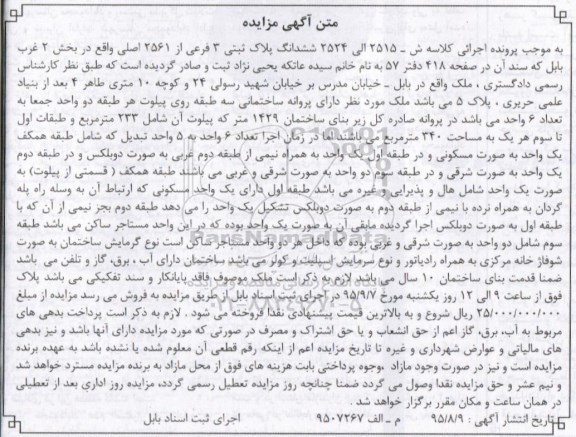 متن آگهی مزایده
به موجب پرونده اجرائی کلاسه ش ـ ۲۵۱۵ الی ۲۵۲۴ ششدانگ پلاک ثبتی ۳ فرعی از ۲۵۶۱ اصلی واقع در بخش ۲ غرب
بابل که سند آن در صفحه ۴۱۸ دفتر ۵۷ به نام خانم سیده عاتکه یحیی نژاد ثبت و صادر گردیده است که طبق نظر کارشناس
رسمی دادگستری ، ملک واقع در بابل ـ خیابان مدرس بر خیابان شهید رسولی ۲۴ و کوچه ۱۰ متری طاهر ۴ بعد از بنیاد
علمی حریری ، پلاک ۵ می باشد ملک مورد نظر دارای پروانه ساختمانی سه طبقه روی پیلوت هر طبقه دو واحد جمعا به
تعداد ۶ واحد می باشد در پروانه صادره کل زیر بنای ساختمان ۱۴۲۹ متر که پیلوت آن شامل ۲۳۳ مترمربع و طبقات اول
تا سوم هر یک به مساحت ۳۴۰ مترمربع می باشد اما در زمان اجرا تعداد ۶ واحد به ۵ واحد تبدیل که شامل طبقه همکف
یک واحد به صورت مسکونی و در طبقه اول یک واحد به همراه نیمی از طبقه دوم غربی به صورت دوبلکس و در طبقه دوم
یک واحد به صورت شرقی و در طبقه سوم دو واحد به صورت شرقی و غربی می باشند طبقه همکف ( قسمتی از پیلوت) به
صورت یک واحد شامل هال و پذیرایی و غیره می باشد طبقه اول دارای یک واحد مسکونی که ارتباط آن به وسله راه پله
گردان به همراه نرده با نیمی از طبقه دوم به صورت دوبلکس تشکیل یک واحد را می دهد طبقه دوم بجز نیمی از آن که با
طبقه اول به صورت دوبلکس اجرا گردیده مابقی آن به صورت یک واحد بوده که در این واحد مستاجر ساکن می باشد طبقه
سوم شامل دو واحد به صورت شرقی و غربی بوده که داخل هر دو واحد مستاجر ساکن است نوع گرمایش ساختمان به صورت
شوفاژ خانه مرکزی به همراه رادیاتور و نوع سرمایش اسپلیت و کولر می باشد ساختمان دارای آب ، برق، گاز و تلفن می باشد
ضمنا قدمت بنای ساختمان ۱۰ سال می باشد لازم به ذکر است ملک موصوف فاقد پایانکار و سند تفکیکی می باشد پلاک
فوق از ساعت ۹ الی ۱۲ روز یکشنبه مورخ ۹۵/۹/۷ در اجرای ثبت اسناد بابل از طریق مزایده به فروش می رسد مزایده از مبلغ
۲۵/۰۰۰/۰۰۰/۰۰۰ ریال شروع و به بالاترین قیمت پیشنهادی نقدا فروخته می شود . لازم به ذکر است پرداخت بدهی های
مربوط به آب، برق، گاز اعم از حق انشعاب و یا حق اشتراک و مصرف در صورتی که مورد مزایده دارای آنها باشد و نیز بدهی
های مالیاتی و عوارض شهرداری و غیره تا تاریخ مزایده اعم از اینکه رقم قطعی آن معلوم شده یا نشده باشد به عهده برنده
مزایده است و نیز در صورت وجود مازاد ،وجوه پرداختی بابت هزینه های فوق از محل مازاد به برنده مزایده مسترد خواهد شد
و نیم عشر و حق مزایده نقدا وصول می گردد ضمنا چنانچه روز مزایده تعطیل رسمی گردد، مزایده روز اداری بعد از تعطیلی
در همان ساعت و مکان مقرر برگزار خواهد شد .
تاریخ انتشار آگهی : ۹۵/۸/۹ م ـ الف ۹۵۰۷۲۶۷ اجرای ثبت اسناد بابل